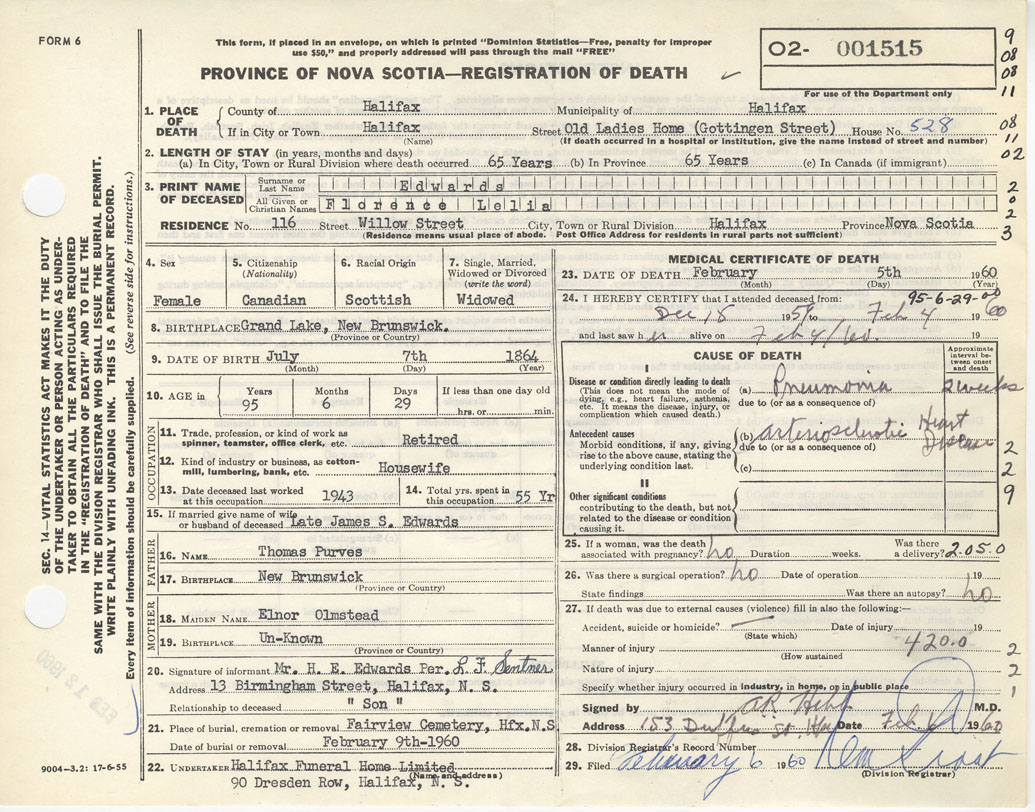 FORM 6
This form, if placed in an envelope, on which is printed "Dominion Statistics—Free, penalty for improper
use $50," and properly addressed will pass through the mail "FREE"
PROVINCE OF NOVA SCOTIA—REGISTRATION OF DEATH
O2- 001515
For use of the Department only
9
08
08
11
08
11
02
2
0
2
3
1. PLACE OF DEATH
County of Halifax Municipality of Halifax
If in City or Town Halifax Street Old Ladies Home (Gottingen Street) House No. 528
(Name) (If death occurred in a hospital or institution, give the name instead of street and number)
2. LENGTH OF STAY (in years, months and days)
(a) In City, Town or Rural Division where death occurred 65 Years (b) In Province 65 Years (c) In Canada (if immigrant)
3. PRINT NAME OF DECEASED
Surname or Last Name Edwards
All Given or Christian Names Florence Lelia
RESIDENCE No. 116 Street Willow Street City, Town or Rural Division Halifax Province Nova Scotia
(Residence means usual place of abode. Post Office Address for residents in rural parts not sufficient)
SEC. 14—VITAL STATISTICS ACT MAKES IT THE DUTY
OF THE UNDERTAKER OR PERSON ACTING AS UNDER-
TAKER TO OBTAIN ALL THE PARTICULARS REQUIRED
IN THE "REGISTRATION OF DEATH" AND FILE THE
SAME WITH THE DIVISION REGISTRAR WHO SHALL ISSUE THE BURIAL PERMIT.
WRITE PLAINLY WITH UNFADING INK. THIS IS A PERMANENT RECORD.
Every item of information should be carefully supplied. (See reverse side for instructions.)
4. Sex
Female
5. Citizenship
(Nationality)
Canadian
6. Racial Origin
Scottish
7. Single, Married,
Widowed or Divorced
(write the word)
Widowed
8. BIRTHPLACE Grand Lake, New Brunswick.
(Province or Country)
9. DATE OF BIRTH July 7th 1864
(Month) (Day) (Year)
10. AGE in
Years Months Days If less than one day old
95 6 29 hrs. or min.
OCCUPATION
11. Trade, profession, or kind of work as
spinner, teamster, office clerk, etc. Retired
12. Kind of industry or business, as cotton-
mill, lumbering, bank, etc. Housewife
13. Date deceased last worked
at this occupation 1943
14. Total yrs. spent in
this occupation 55 Yr
15. If married give name of wife
or husband of deceased Late James S. Edwards
FATHER
16. NAME Thomas Purves
17. BIRTHPLACE New Brunswick
(Province or Country)
MOTHER
18. MAIDEN NAME Elnor Olmstead
19. BIRTHPLACE Un-Known
(Province or Country)
20. Signature of informant Mr. H. E. Edwards Per. L. F. Sentner
Address 13 Birmingham Street, Halifax, N. S.
Relationship to deceased " Son "
21. Place of burial, cremation or removal Fairview Cemetery, Hfx.N.S
Date of burial or removal February 9th-1960
22. UNDERTAKER Halifax Funeral Home Limited
(Name and address)
90 Dresden Row, Halifax, N. S.
9004-3.2: 17-6-55
MEDICAL CERTIFICATE OF DEATH
23. DATE OF DEATH February 5th 1960
(Month) (Day) (Year)
24. I HEREBY CERTIFY that I attended deceased from: 95-6-29-00
Dec 18 195 to Feb 4 1960
and last saw her alive on Feb 4/60.
CAUSE OF DEATH
Approximate
interval be-
tween onset
and death
I
Disease or condition directly leading to death
(This does not mean the mode of
dying, e.g., heart failure, asthenia,
etc. It means the disease, injury, or
complication which caused death.)
(a) Pneumonia 2 weeks
due to (or as a consequence of)
Antecedent causes
Morbid conditions, if any, giving
rise to the above cause, stating the
underlying condition last.
(b) arteriosclerotic Heart Disease
due to (or as a consequence of)
(c)
II
Other significant conditions
contributing to the death, but not
related to the disease or condition
causing it.
2
2
9
25. If a woman, was the death
associated with pregnancy? no Duration weeks. Was there
a delivery? 2.05.0
26. Was there a surgical operation? no Date of operation 19
State findings Was there an autopsy? no
27. If death was due to external causes (violence) fill in also the following:—
Accident, suicide or homicide? Date of injury 19
(State which)
Manner of injury 420.0
(How sustained)
Nature of injury
Specify whether injury occurred in industry, in home, or in public place
2
2
1
Signed by M.D.
Address 153 St. Date Feb 6 1960
28. Division Registrar's Record Number
29. Filed February 6 1960
(Division Registrar)
FEB 18 1960